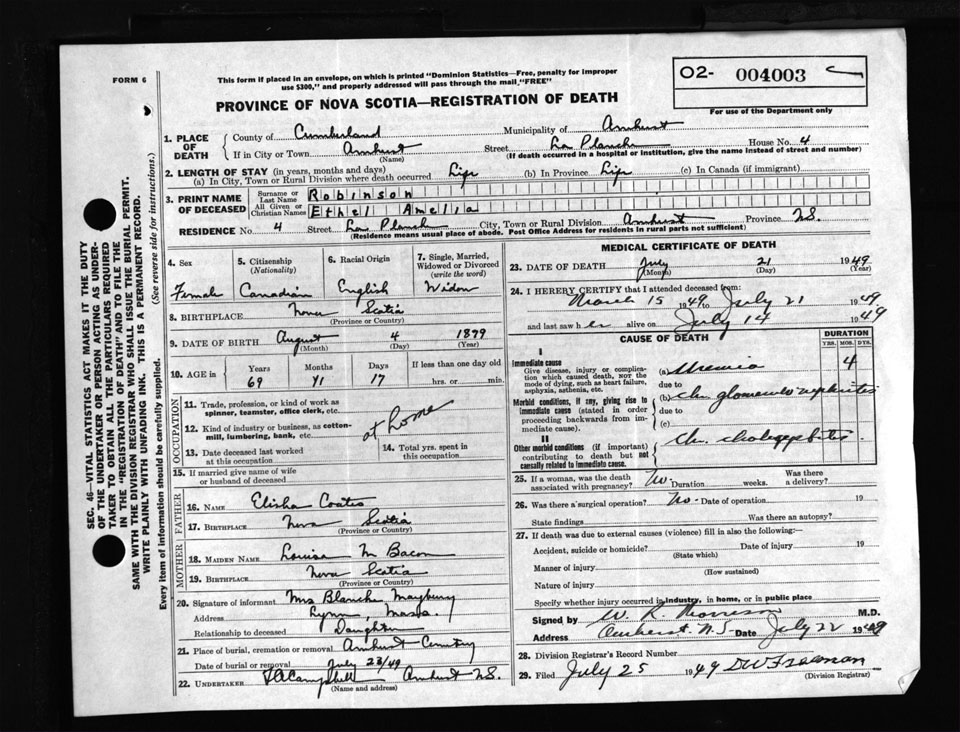 FORM 6
This form if placed in an envelope, on which is printed "Dominion Statistics—Free, penalty for improper
use $300," and properly addressed will pass through the mail, "FREE"
O2- 004003
For use of the Department only
PROVINCE OF NOVA SCOTIA—REGISTRATION OF DEATH
1. PLACE OF DEATH
County of Cumberland Municipality of Amherst
If in City or Town Amherst Street La Planche House No. 4
(Name) (If death occurred in a hospital or institution, give the name instead of street and number)
2. LENGTH OF STAY (in years, months and days)
(a) In City, Town or Rural Division where death occurred Life (b) In Province Life (c) In Canada (if immigrant)
3. PRINT NAME OF DECEASED
Surname or Last Name Robinson
All Given or Christian Names Ethel Amelia
RESIDENCE No. 4 Street La Planche City, Town or Rural Division Amherst Province N.S.
(Residence means usual place of abode. Post Office Address for residents in rural parts not sufficient)
4. Sex
Female
5. Citizenship (Nationality)
Canadian
6. Racial Origin
English
7. Single, Married, Widowed or Divorced (write the word)
Widow
8. BIRTHPLACE Nova Scotia
(Province or Country)
9. DATE OF BIRTH August 4 1879
(Month) (Day) (Year)
10. AGE in Years Months Days If less than one day old
69 11 17 hrs. or min.
OCCUPATION
11. Trade, profession, or kind of work as
spinner, teamster, office clerk, etc.
12. Kind of industry or business, as cotton-
mill, lumbering, bank, etc. at home
13. Date deceased last worked
at this occupation
14. Total yrs. spent in
this occupation
15. If married give name of wife
or husband of deceased
FATHER
16. NAME Elisha Coates
17. BIRTHPLACE Nova Scotia
(Province or Country)
MOTHER
18. MAIDEN NAME Louisa M Bacon
19. BIRTHPLACE Nova Scotia
(Province or Country)
20. Signature of informant Mrs Blanche Maybury
Address Lynn, Mass.
Relationship to deceased Daughter
21. Place of burial, cremation or removal Amherst Cemetery
Date of burial or removal July 23/49
22. UNDERTAKER Campbell Amherst N.S.
(Name and address)
MEDICAL CERTIFICATE OF DEATH
23. DATE OF DEATH July 21 1949
(Month) (Day) (Year)
24. I HEREBY CERTIFY that I attended deceased from:
March 15 1949 to July 21 1949
and last saw her alive on July 14 1949
CAUSE OF DEATH DURATION
YRS. MOS. DYS.
I
Immediate cause
Give disease, injury or complication which caused death, NOT the mode of dying, such as heart failure, asphyxia, asthenia, etc.
(a) Uremia 4
due to
Morbid conditions, if any, giving rise to immediate cause (stated in order proceeding backwards from immediate cause).
(b) Chr. glomerulo nephritis
due to
(c)
II
Other morbid conditions (if important) contributing to death but not causally related to immediate cause.
Ch. cholecystitis
25. If a woman, was the death
associated with pregnancy? No. Duration weeks. Was there
a delivery?
26. Was there a surgical operation? No. Date of operation 19
State findings Was there an autopsy?
27. If death was due to external causes (violence) fill in also the following:
Accident, suicide or homicide? Date of injury 19
(State which)
Manner of injury
(How sustained)
Nature of injury
Specify whether injury occurred in industry, in home, or in public place
Signed by W. R. Morrison M.D.
Address Amherst N.S Date July 22 1949
28. Division Registrar's Record Number
29. Filed July 25 1949 DW Freeman
(Division Registrar)
SEC. 46—VITAL STATISTICS ACT MAKES IT THE DUTY
OF THE UNDERTAKER OR PERSON ACTING AS UNDER-
TAKER TO OBTAIN ALL THE PARTICULARS REQUIRED
IN THE "REGISTRATION OF DEATH" AND TO FILE THE
SAME WITH THE DIVISION REGISTRAR WHO SHALL ISSUE THE BURIAL PERMIT.
WRITE PLAINLY WITH UNFADING INK. THIS IS A PERMANENT RECORD.
Every item of information should be carefully supplied. (See reverse side for instructions.)